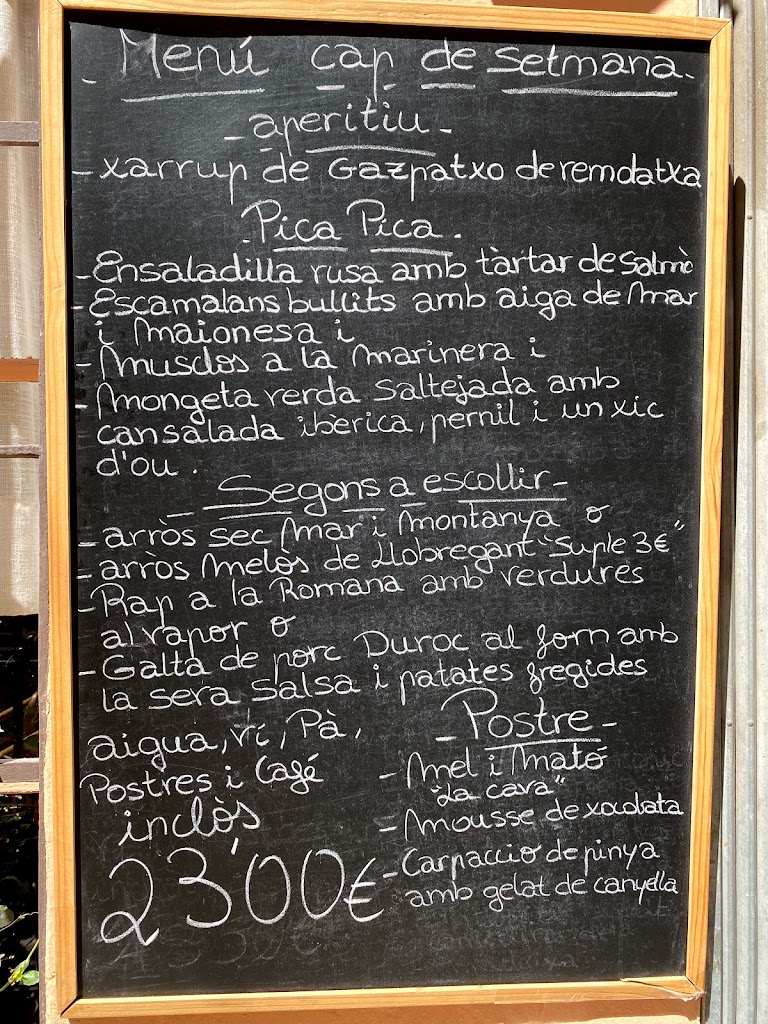 - Menú cap de setmana -
- aperitiu -
- xarrup de Gazpatxo de remolatxa
- Pica Pica -
- Ensaladilla rusa amb tàrtar de salmó
- Escamalans bullits amb aiga de mar
i maionesa i
- Musclos a la marinera i
- Mongeta verda saltejada amb
cansalada ibèrica, pernil i un xic
d'ou.
- Segons a escollir -
- arròs sec mar i montanya o
- arròs melòs de Llobregant "Suple 3€"
- Rap a la Romana amb verdures
al vapor o
- Galta de porc Duroc al forn amb
la sera salsa i patates fregides
aigua, vi, Pà,
Postres i Café
inclòs
23'00€
- Postre -
- Mel i Mató
"La cava"
- Mousse de xocolata
- Carpaccio de pinya
amb gelat de canyella